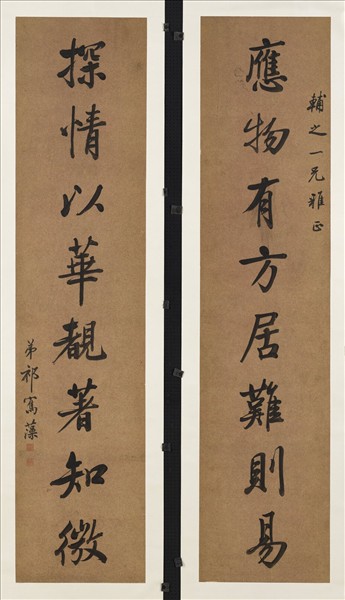 輔之一兄雅正
應物有方居難則易
探情以華覩著知微
弟祁寯藻